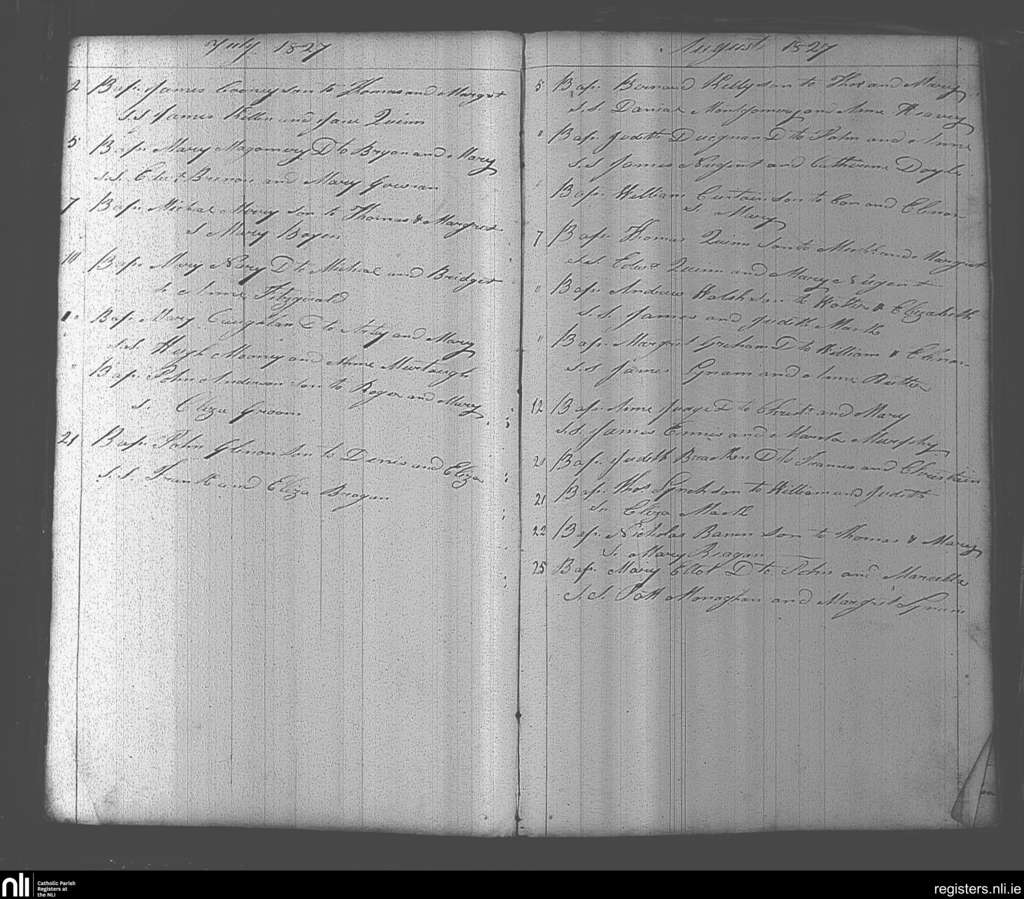 July 1827
2 Bap. James Cooney son to Thomas and Margret
S.S. James Killen and Jane Quinn
5 Bap. Mary Magomery D to Bryan and Mary
S.S. and Mary Gowran
7 Bap. Michal Morry son to Thomas & Margret
S Mary Bogen
10 Bap. Mary Nery D to Michael and Bridget
S. Anne Fitzgerald
Bap. Mary Caughlan D to and Mary
S.S. Hugh Meany and Anne Murtaugh
" Bap. John Anderson son to Roger and Mary
S. Eliza Groom
21 Bap. John Glenon son to Denis and Eliza
S.S. Frank and Eliza Brogan
August 1827
5 Bap. Bernard Kelly son to Thos and Mary
S.S. Daniel Montgomery and Anne Heavey
" Bap. Judith Duegnan D to John and Anne
S.S. James Nugent and Catherine Doyle
" Bap. William Curtain son to Con and Elenor
S. Mary
7 Bap. Thomas Quinn son to and Margret
S.S. Edwd Quinn and Mary Nugent
" Bap. Andrew Walsh son to Walter & Elizabeth
S.S. James and Judith Mack
" Bap. Margret Greham D to William & Elinor
S.S. James Gream and Anne
12 Bap. Anne Judge D to Christr and Mary
S.S. James Ennis and Murphy
21 Bap. Judith Bracken D to Francis and Christian
21 Bap. Thos Lynch son to William and Judith
S. Eliza Mack
22 Bap. Nicholas son to Thomas & Mary
S. Mary Reagan
25 Bap. Mary Ellot D to John and Marcella
S.S. Patt Monaghan and Margret
nli
Catholic Parish
Registers at
the NLI
registers.nli.ie